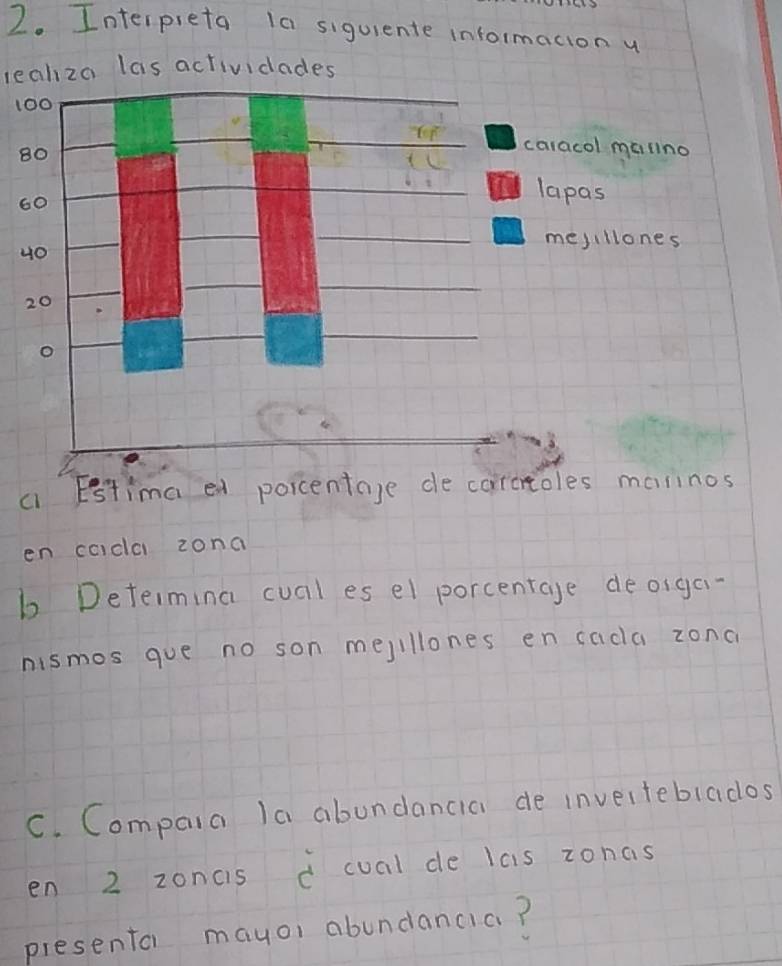 2. Interpreta la siguiente informacion y
realiza las actividades
100
80
60
40
20
0
caracol marino
lapas
mejillones
a Estima el porcentaje de caracoles marinos
en cada zona
b Determina cual es el porcentaje de orga-
nismos que no son mejillones en cada zona
C. Compara la abundancia de invertebrados
en 2 zonas ¿ cual de las zonas
presenta mayor abundancia?